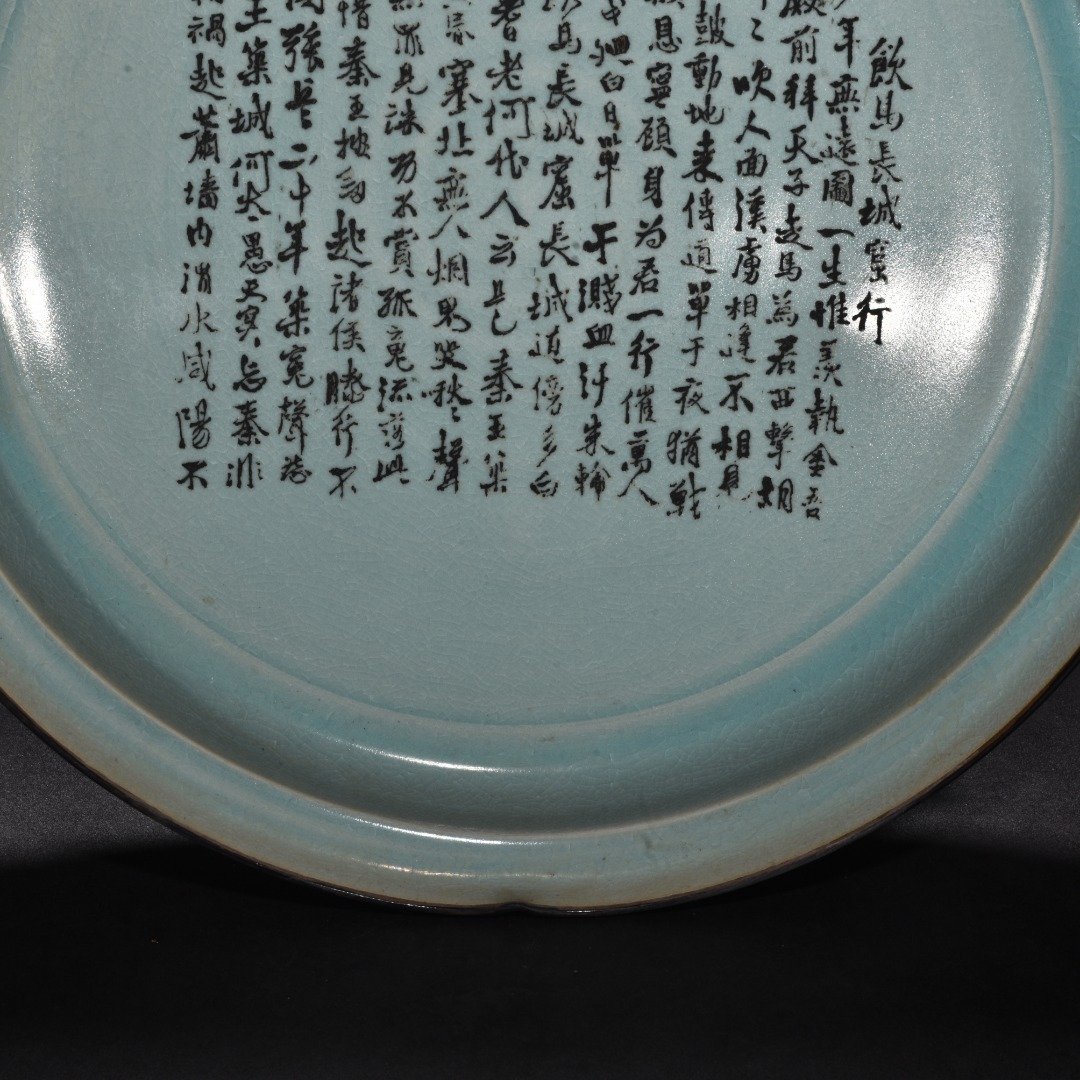 飲馬長城窟行
年無遠圖一生惟羨執金吾
殿前拜天子走馬為君西擊胡
〻吹人面漢虜相逢不相見
鼓動地來傳道單于夜猶戰
恩寧顧身為君一行催萬人
戈迴白日單于濺血汁朱輪
馬長城窟長城道傍多白
耆老何代人云是秦王築
昏塞北無人烟鬼哭啾〻聲
無罪見誅功不賞孤魂流落此
惜秦王按劍起諸侯膝行不
國強兵二十年築冤聲
王築城何太愚天實亡秦非
禍起蕭墻內渭水咸陽不